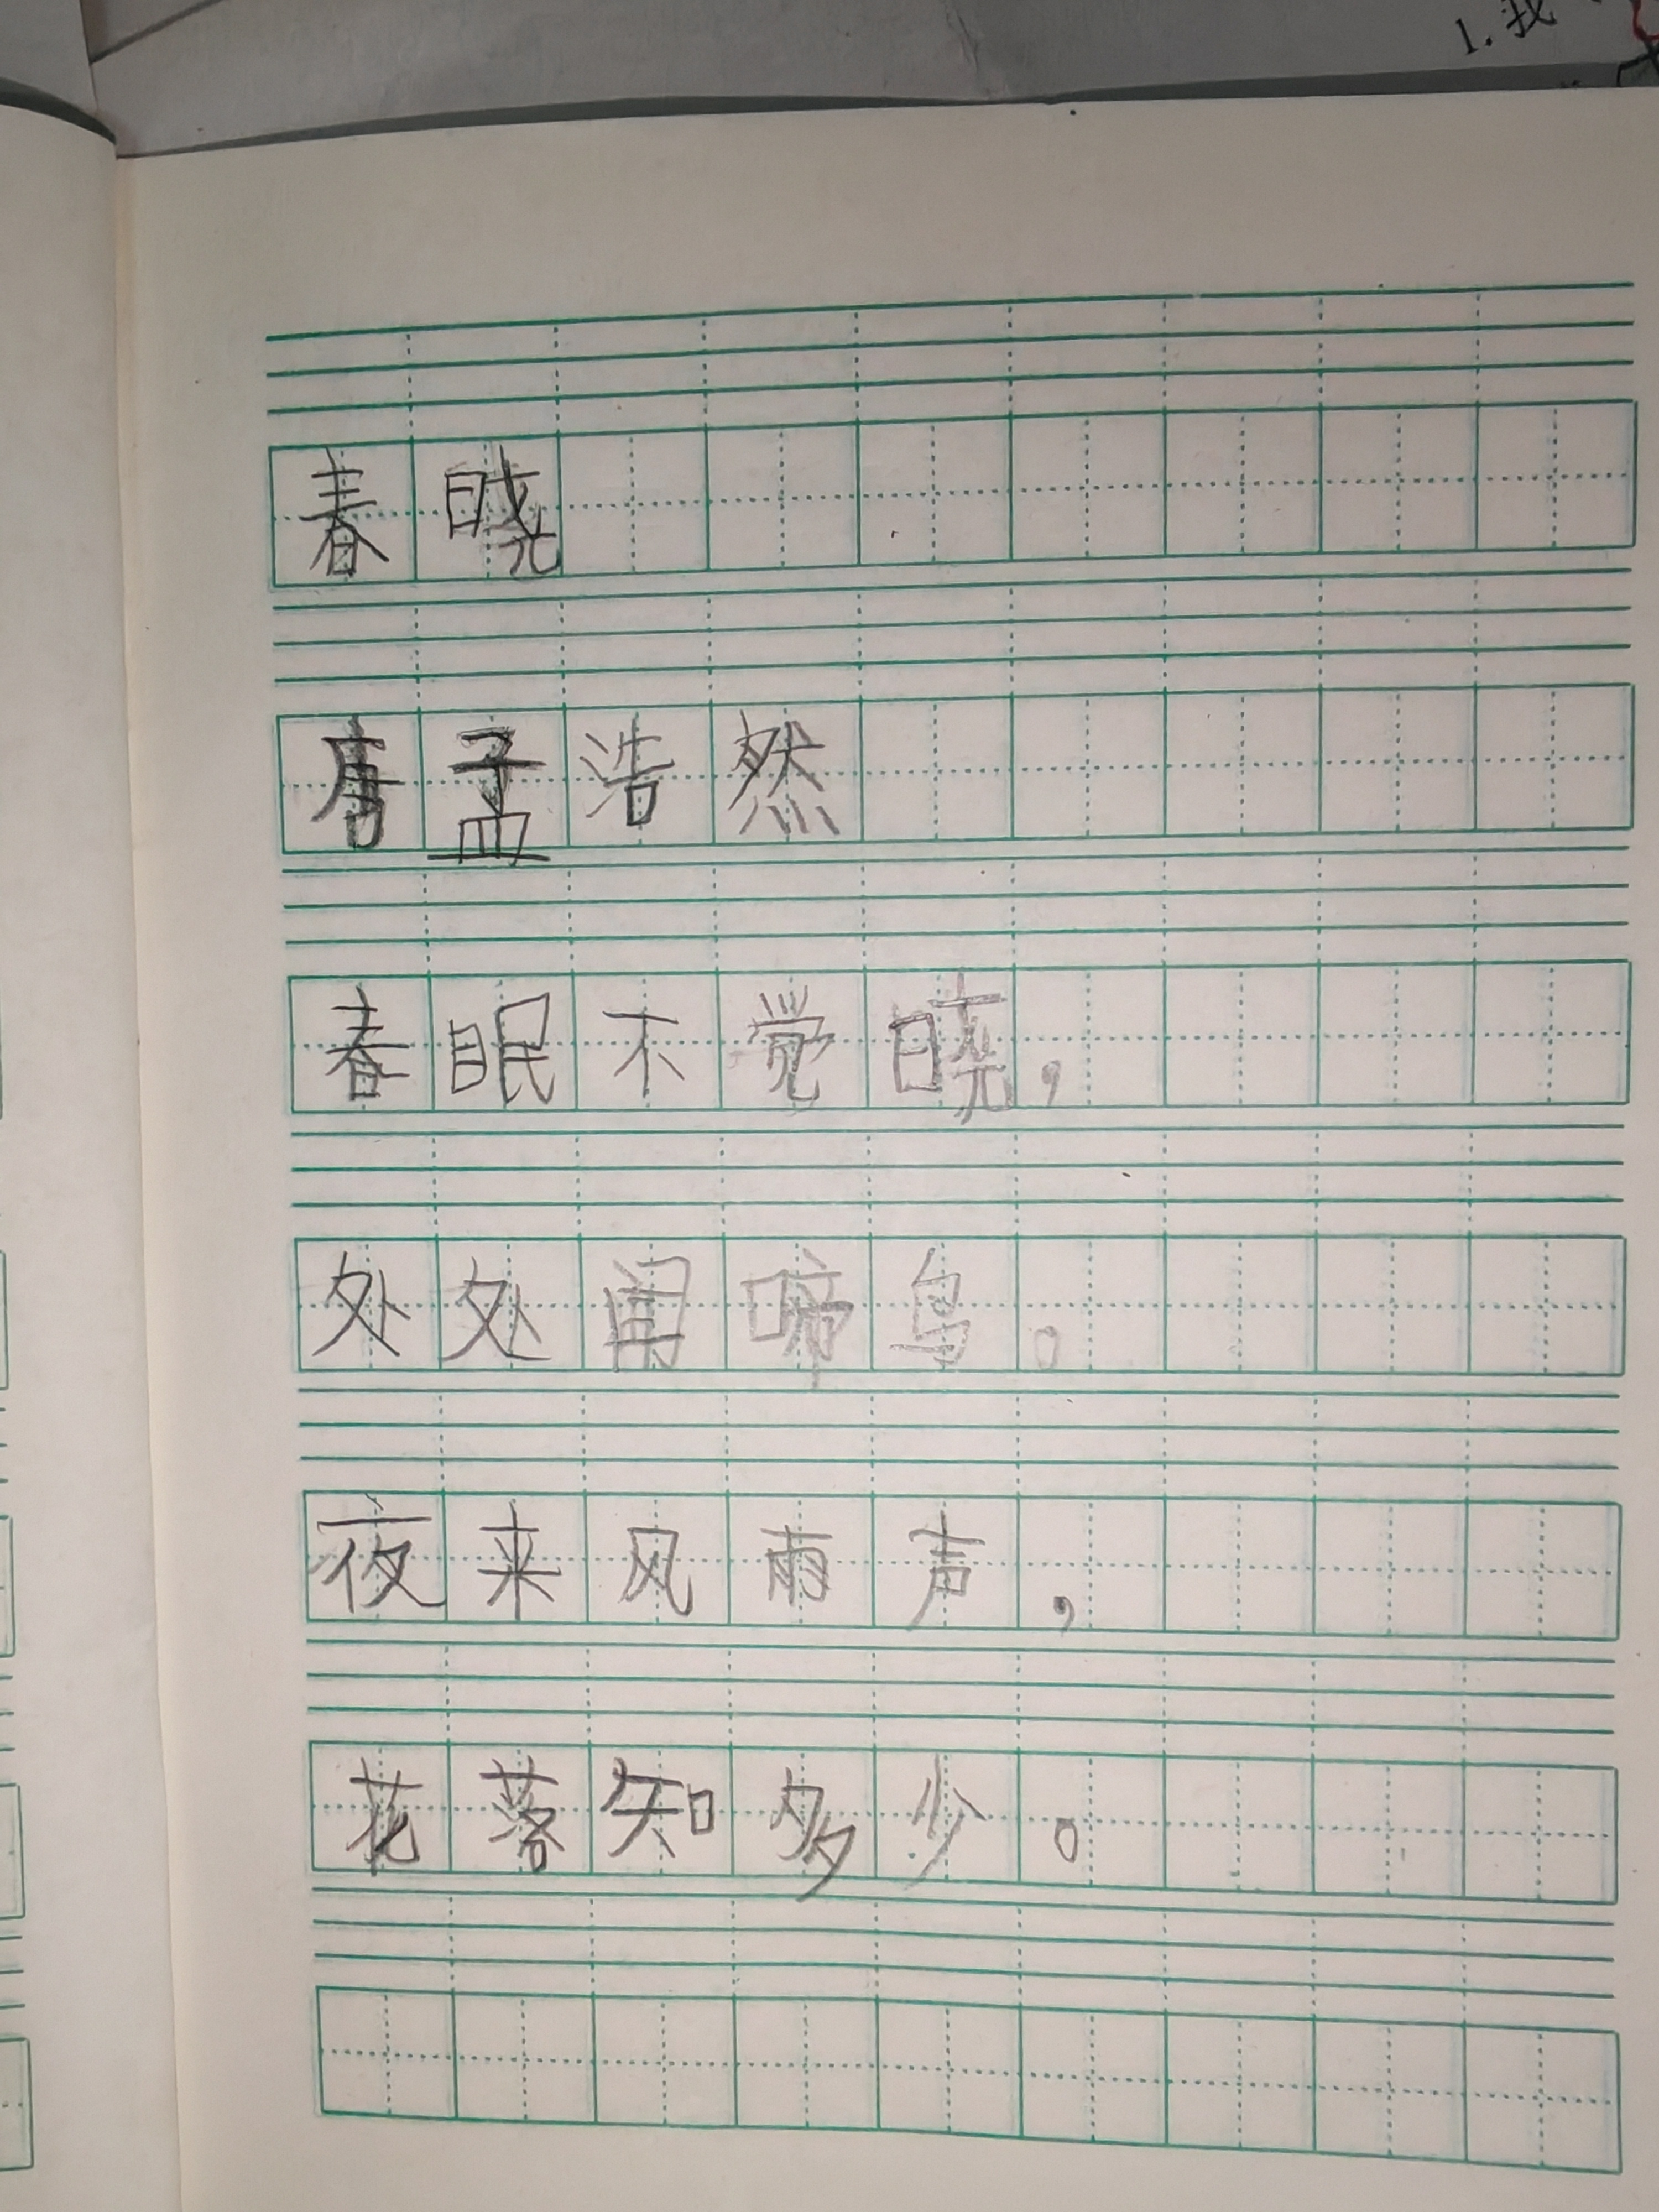 1. 我
春晓
唐孟浩然
春眠不觉晓，
处处闻啼鸟。
夜来风雨声，
花落知多少。